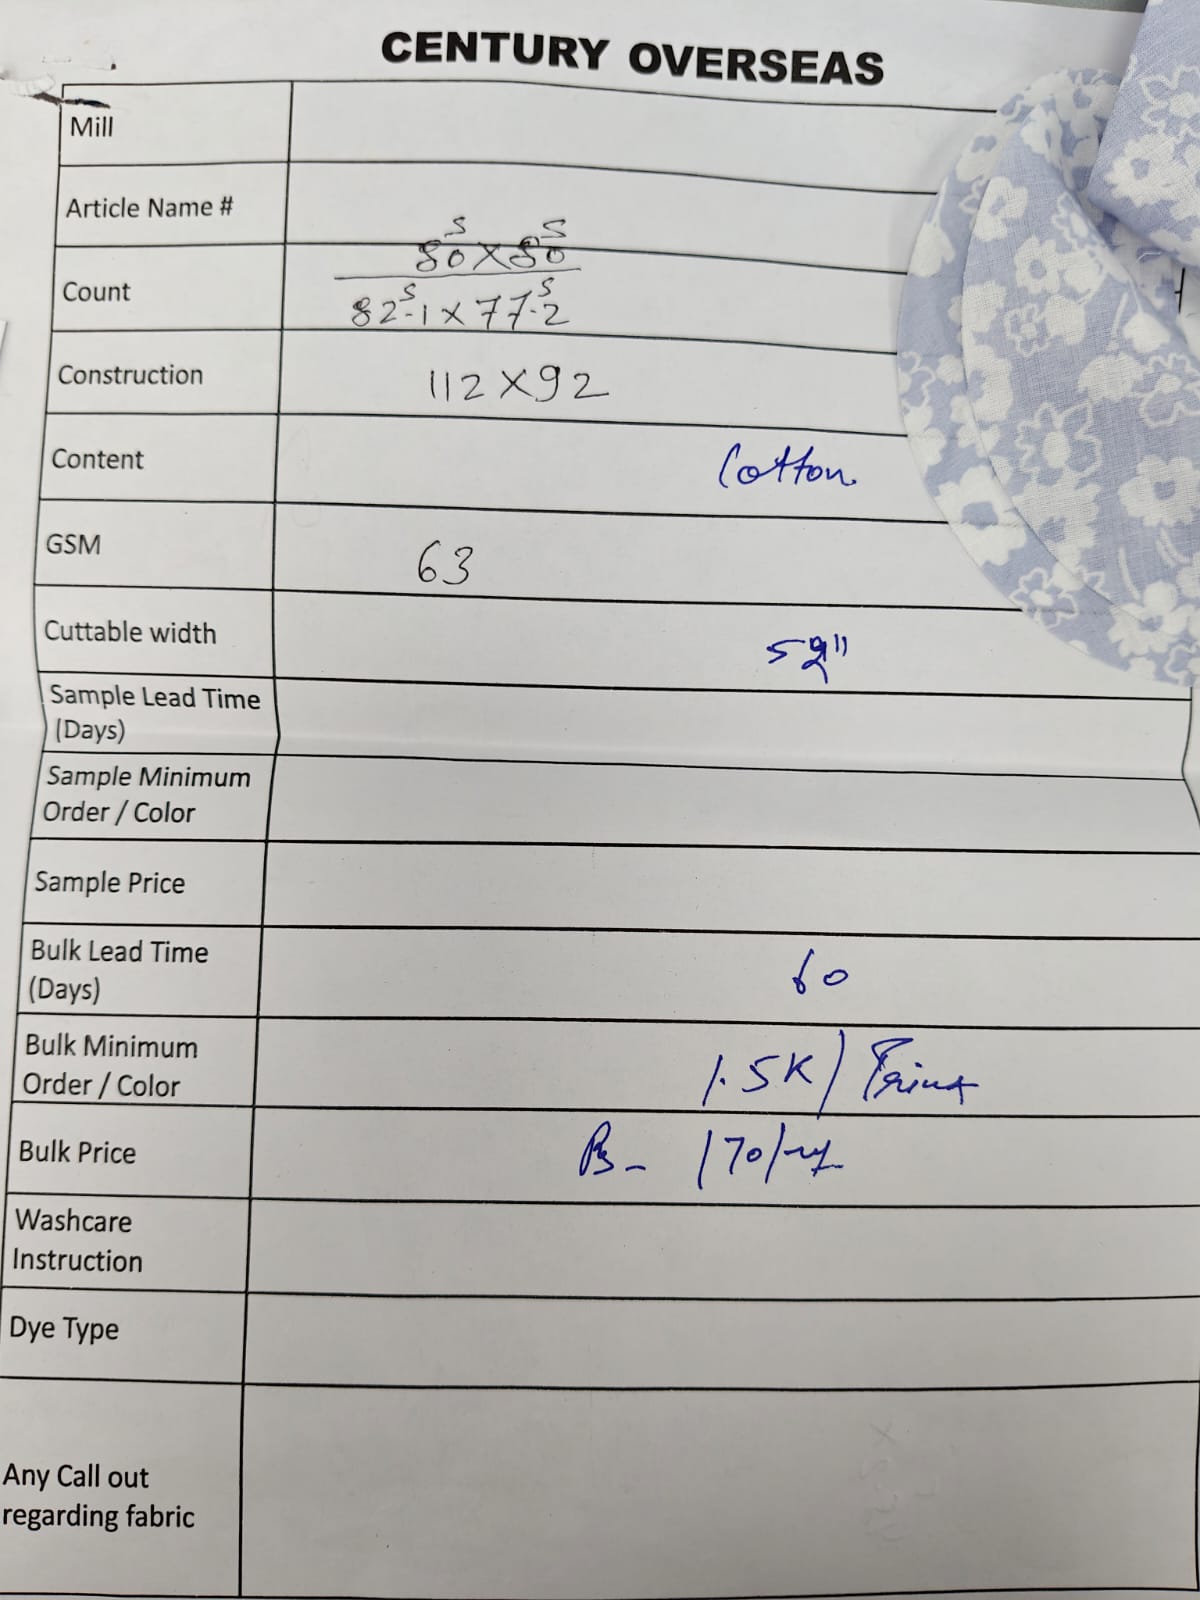 CENTURY OVERSEAS
Mill
Article Name #
80s X 80s
Count
82.1s X 77.2s
Construction 112 X 92
Content Cotton
GSM 63
Cuttable width
Sample Lead Time
(Days)
Sample Minimum
Order / Color
Sample Price
Bulk Lead Time
(Days) 60
Bulk Minimum
Order / Color 1.5K / Print
Bulk Price Rs - 170/-
Washcare
Instruction
Dye Type
Any Call out
regarding fabric